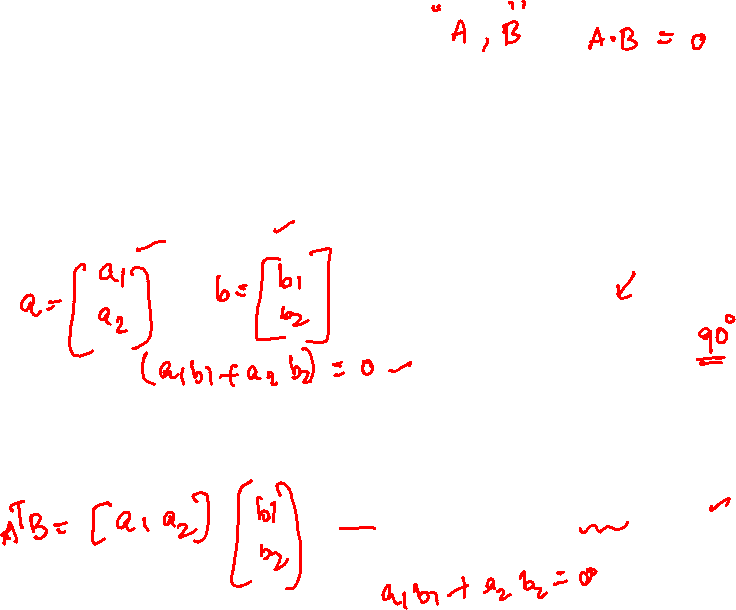 "A, B" A·B = 0
a = [a1 a2] b = [b1 b2]
90°
(a1b1 + a2 b2) = 0
AᵀB = [a1 a2] [b1 b2]
a1b1 + a2 b2 = 0